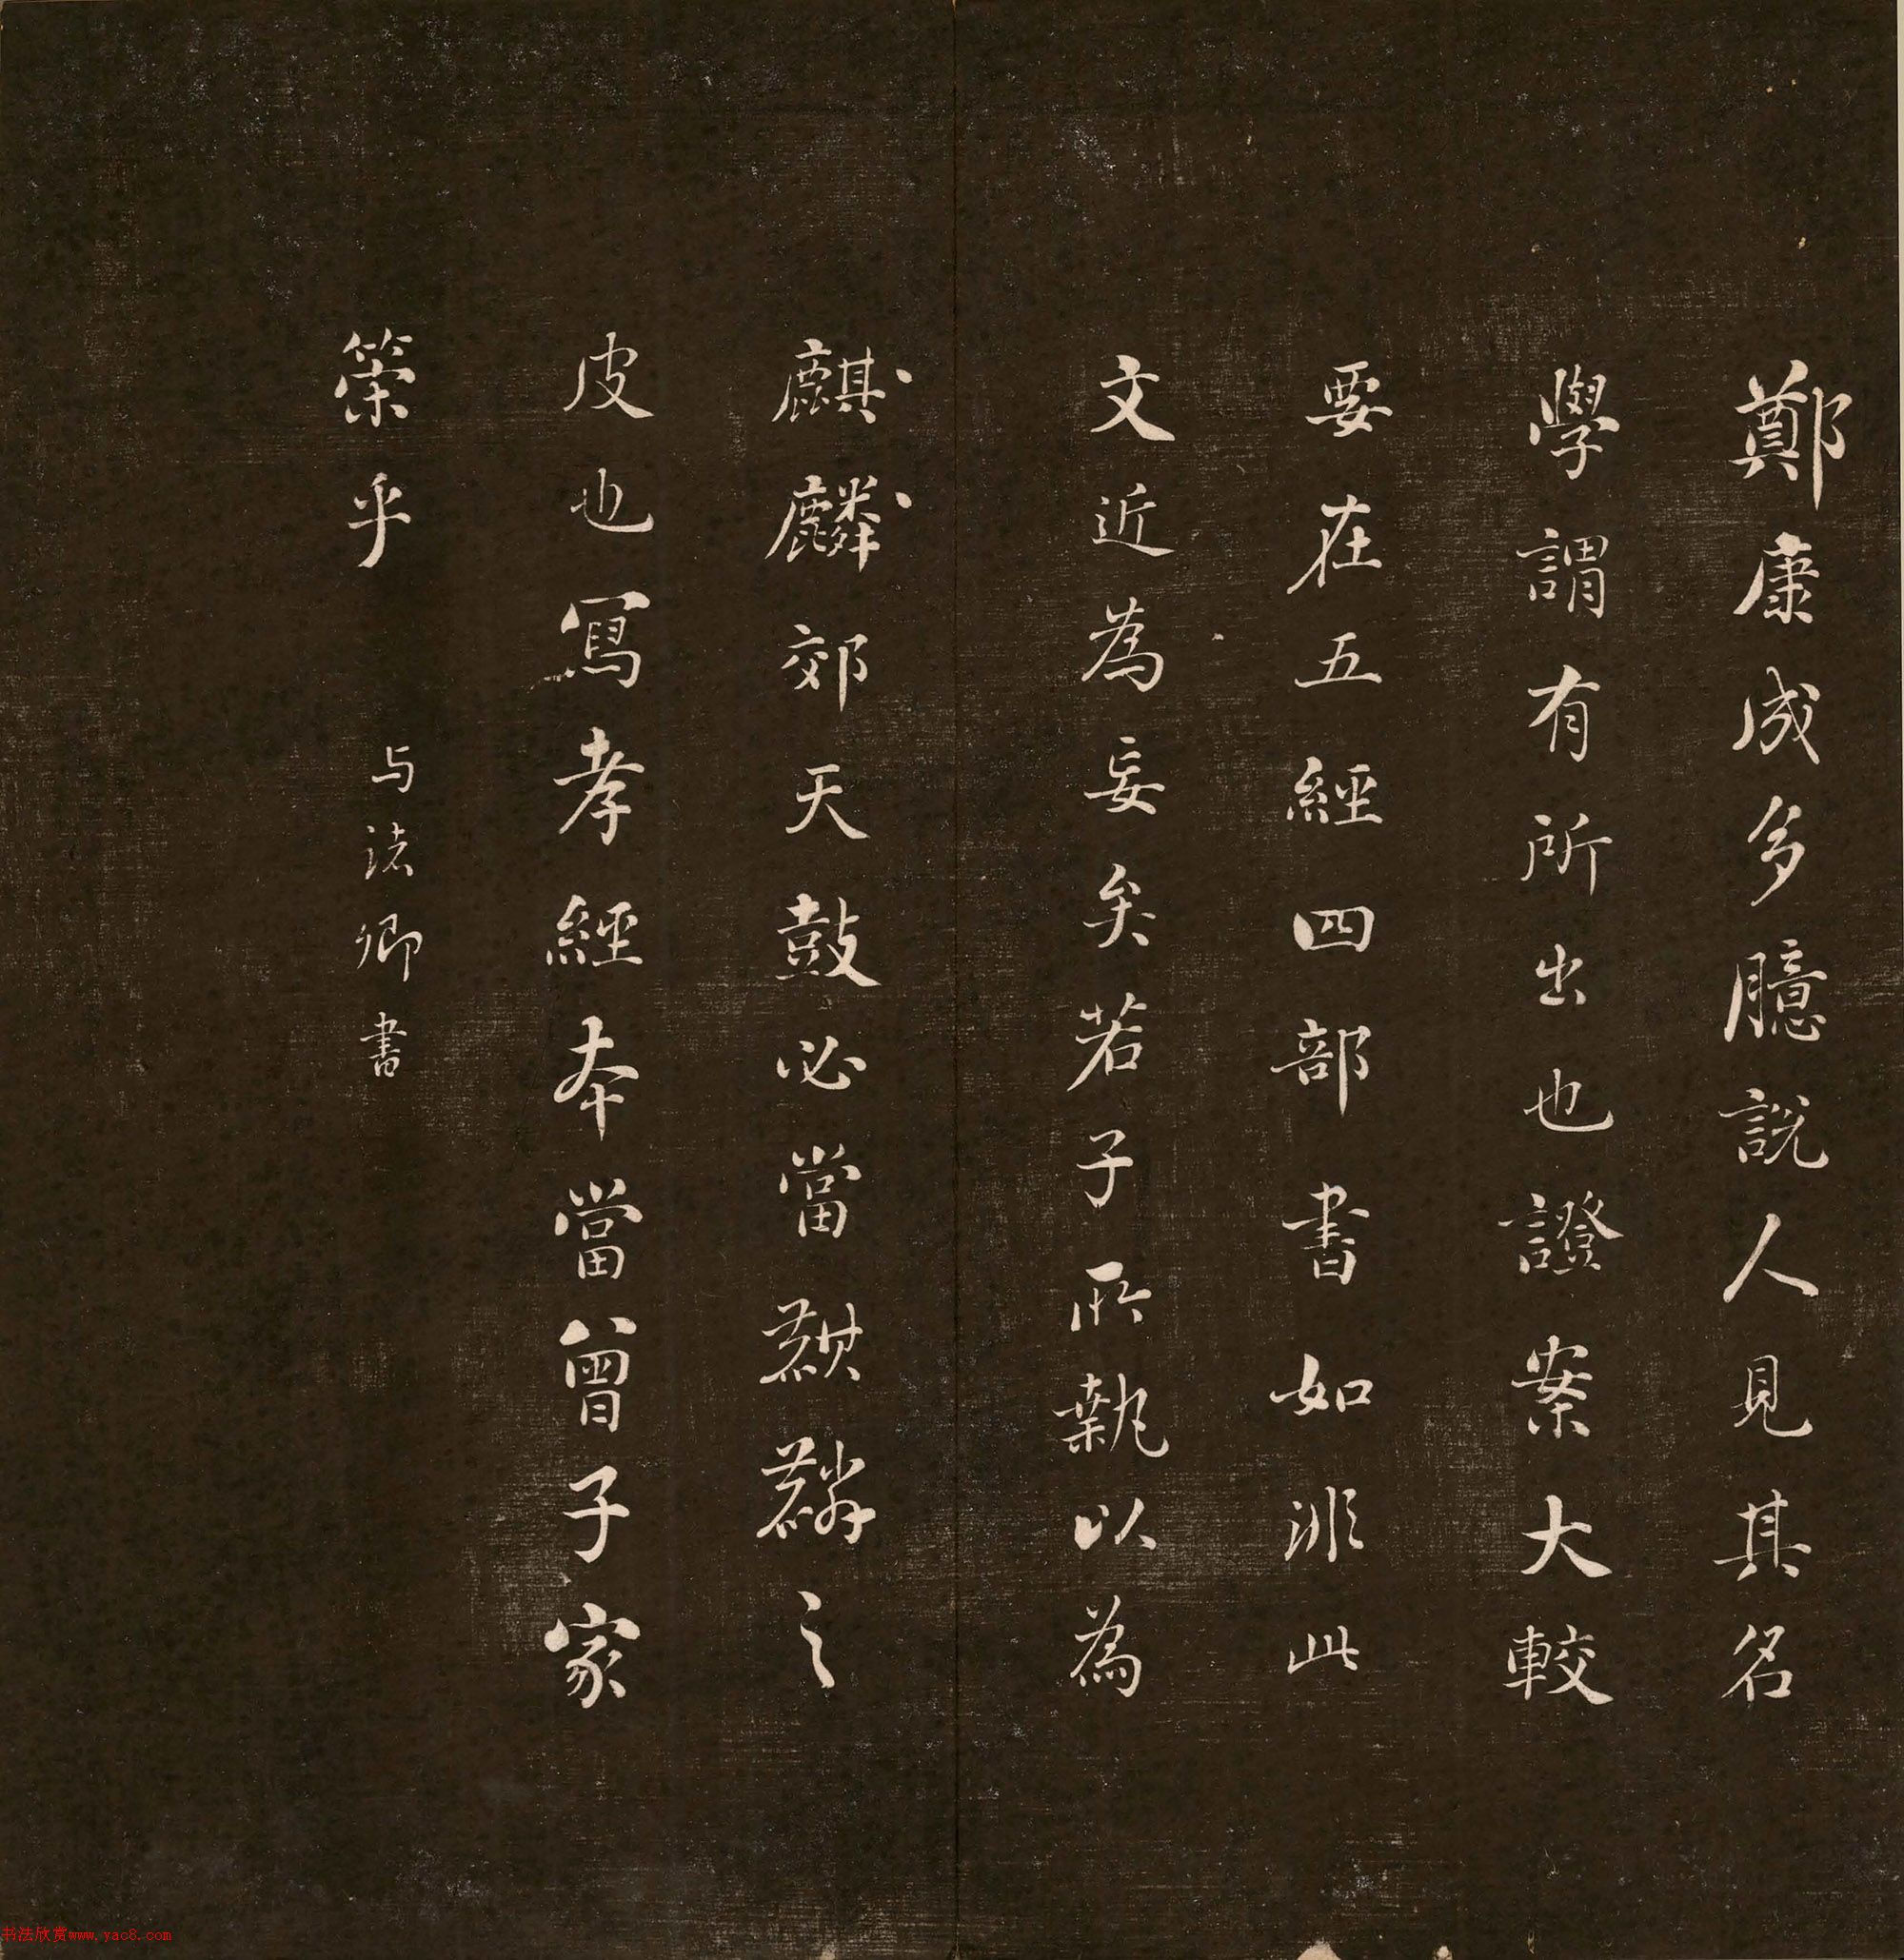 鄭康成多臆說人見其名
學謂有所出也證案大較
要在五經四部書如非此
文近為妄矣若子所執以為
麒麟郊天鼓必當麒麟之
皮也寫孝經本當曾子家
策乎
与諸卿書
书法欣赏www.yac8.com